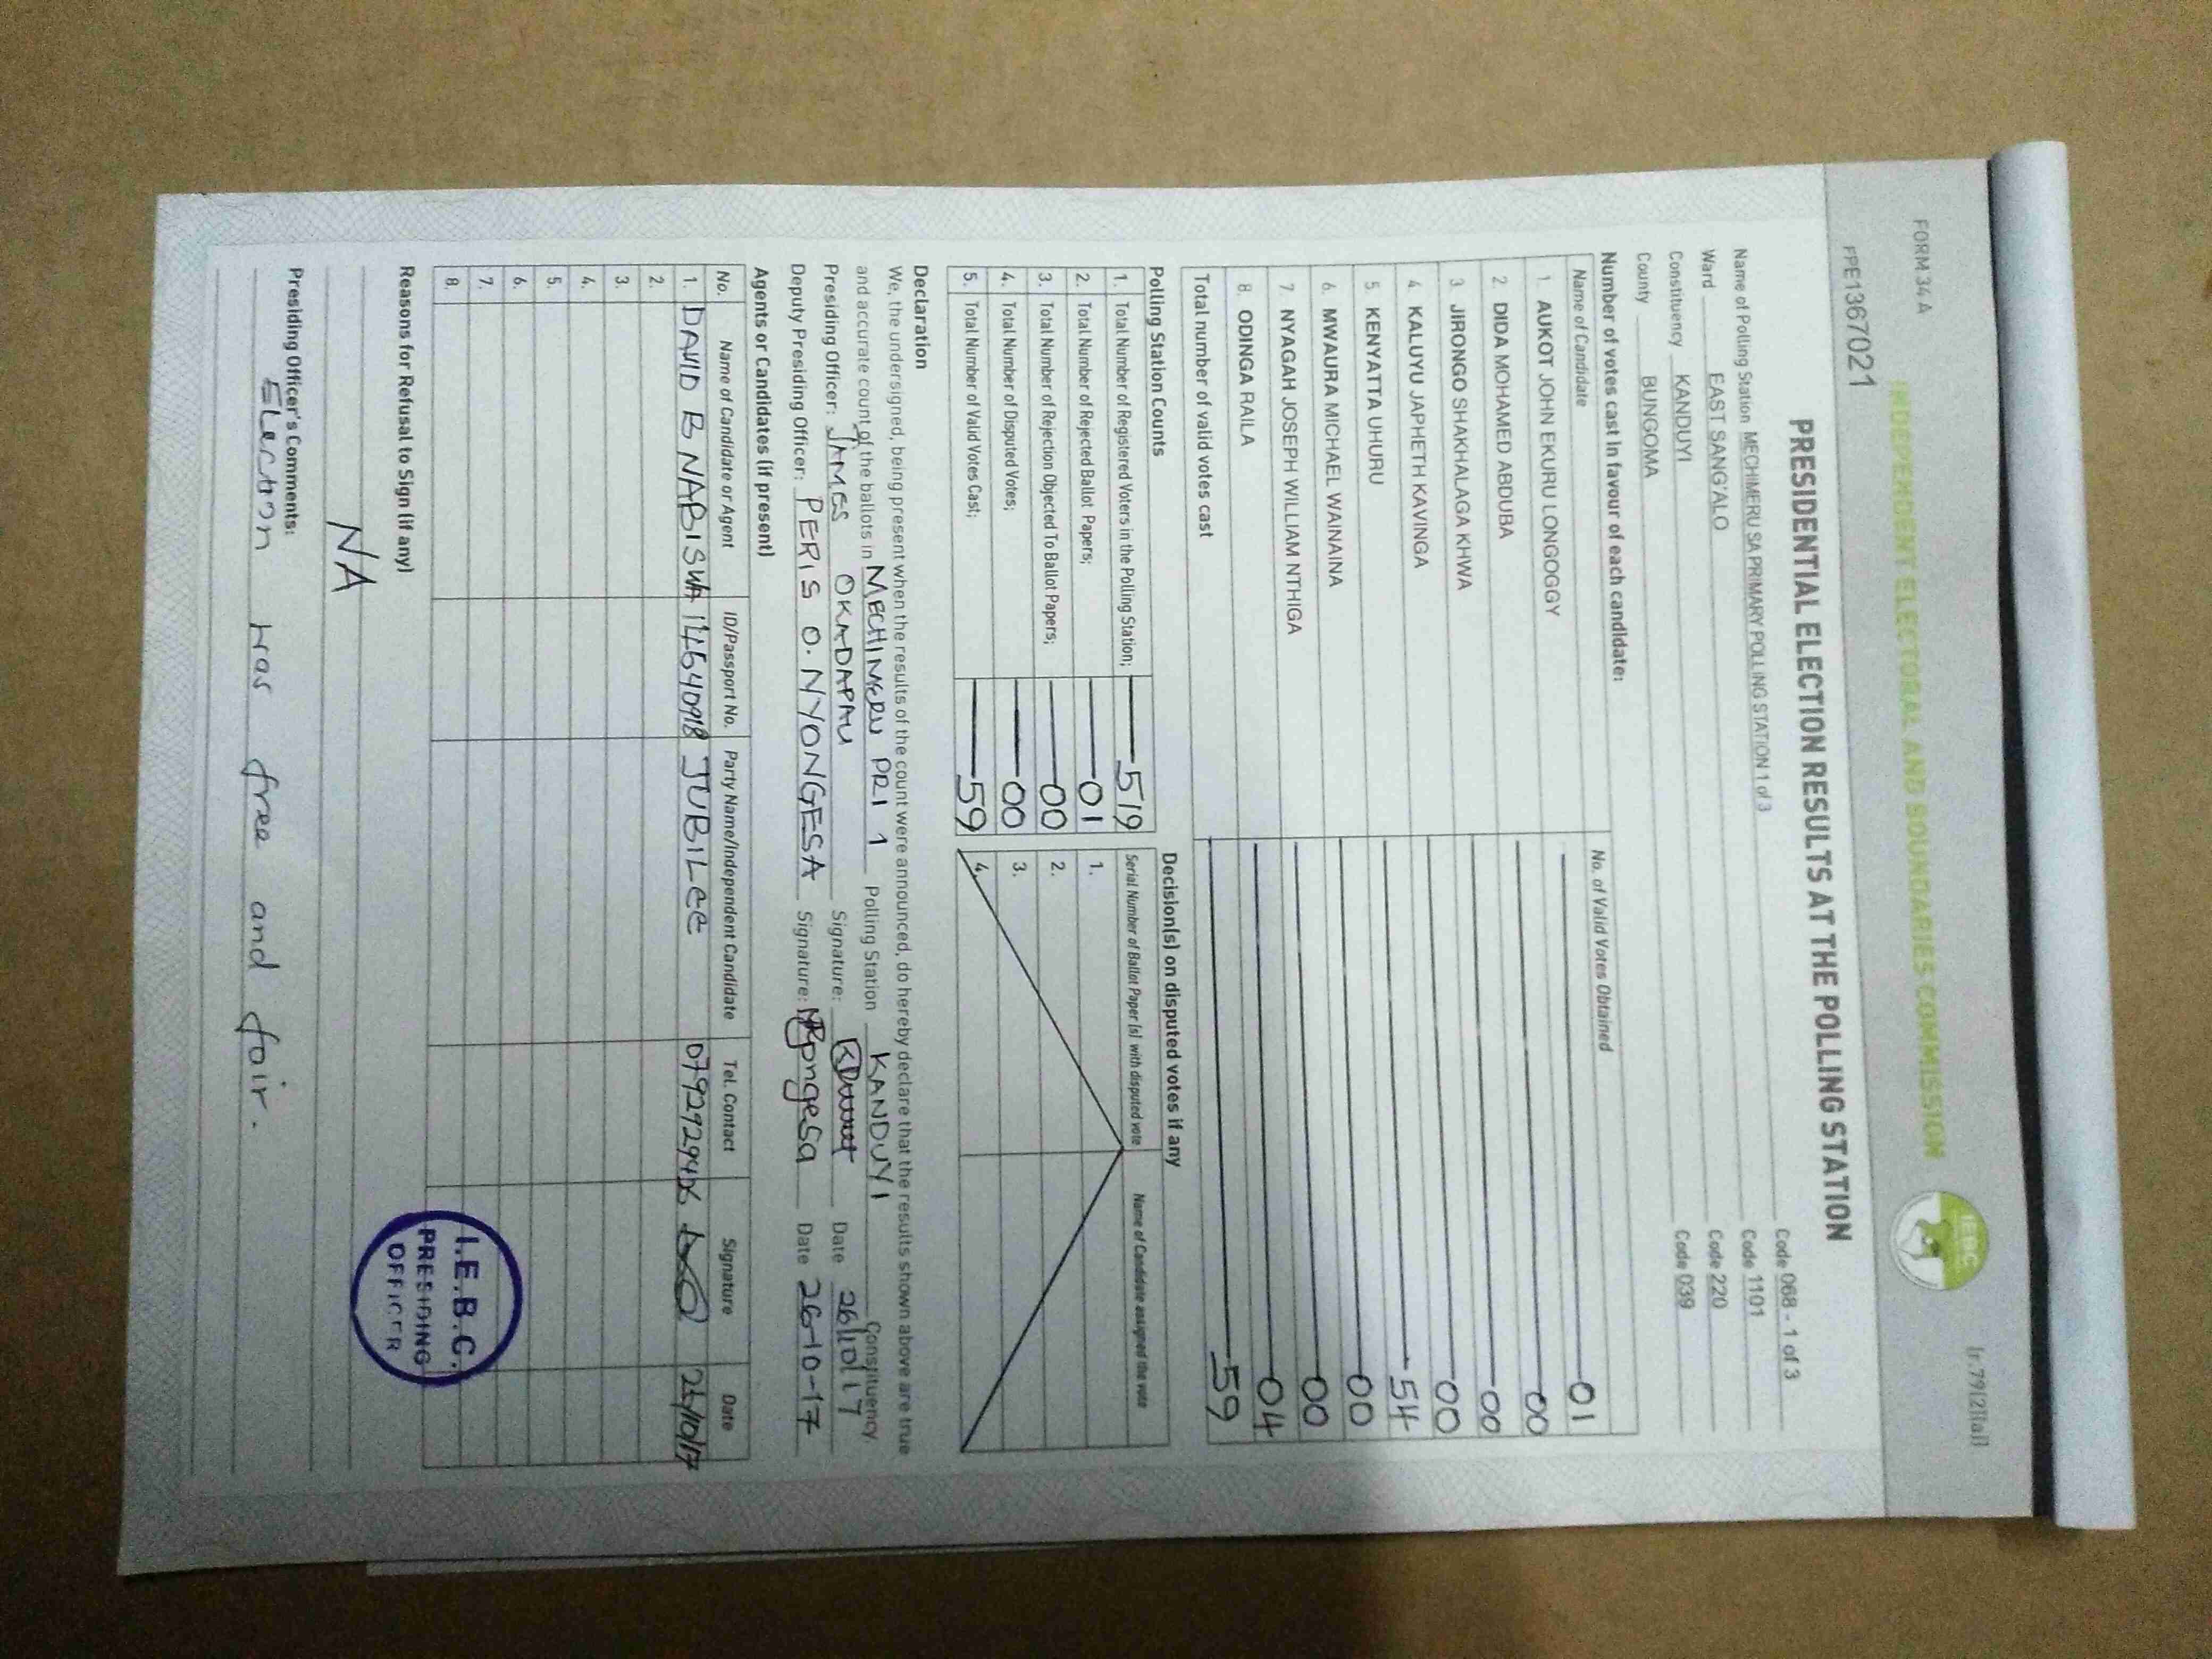 FORM 34 A
INDEPENDENT ELECTORAL AND BOUNDARIES COMMISSION
IEBC
[r.79(2)(a)]
FPE1367021
PRESIDENTIAL ELECTION RESULTS AT THE POLLING STATION
Name of Polling Station MECHIMERU SA PRIMARY POLLING STATION 1 of 3 Code 068 - 1 of 3
Ward EAST SANG'ALO Code 1101
Constituency KANDUYI Code 220
County BUNGOMA Code 039
Number of votes cast in favour of each candidate:
Name of Candidate No. of Valid Votes Obtained
1. AUKOT JOHN EKURU LONGOGGY 01
2 DIDA MOHAMED ABDUBA 00
3 JIRONGO SHAKHALAGA KHWA 00
4 KALUYU JAPHETH KAVINGA 00
5 KENYATTA UHURU 54
6. MWAURA MICHAEL WAINAINA 00
7. NYAGAH JOSEPH WILLIAM NTHIGA 00
8. ODINGA RAILA 04
Total number of valid votes cast 59
Polling Station Counts
1. Total Number of Registered Voters in the Polling Station; 519
2. Total Number of Rejected Ballot Papers; 01
3. Total Number of Rejection Objected To Ballot Papers; 00
4. Total Number of Disputed Votes; 00
5. Total Number of Valid Votes Cast; 59
Decision(s) on disputed votes if any
Serial Number of Ballot Paper (s) with disputed vote Name of Candidate assigned the vote
1.
2.
3.
4.
Declaration
We, the undersigned, being present when the results of the count were announced, do hereby declare that the results shown above are true
and accurate count of the ballots in MECHIMERU PRI 1 Polling Station KANDUYI Constituency.
Presiding Officer: JAMES OKADAPAU Signature: Date 26/10/17
Deputy Presiding Officer: PERIS O. NYONGESA Signature: Date 26-10-17
Agents or Candidates (if present)
No. Name of Candidate or Agent ID/Passport No. Party Name/Independent Candidate Tel. Contact Signature Date
1. DAVID B NABISWA JUBILEE 26/10/17
2.
3.
4.
5.
6.
7.
8.
I.E.B.C.
PRESIDING
OFFICER
Reasons for Refusal to Sign (if any)
NA
Presiding Officer's Comments:
Election was free and fair.